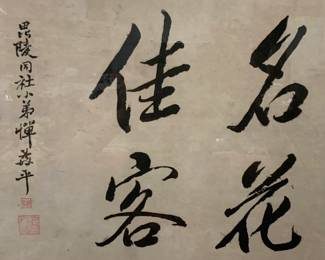 名花
佳客
毘陵同社小弟惲荔平